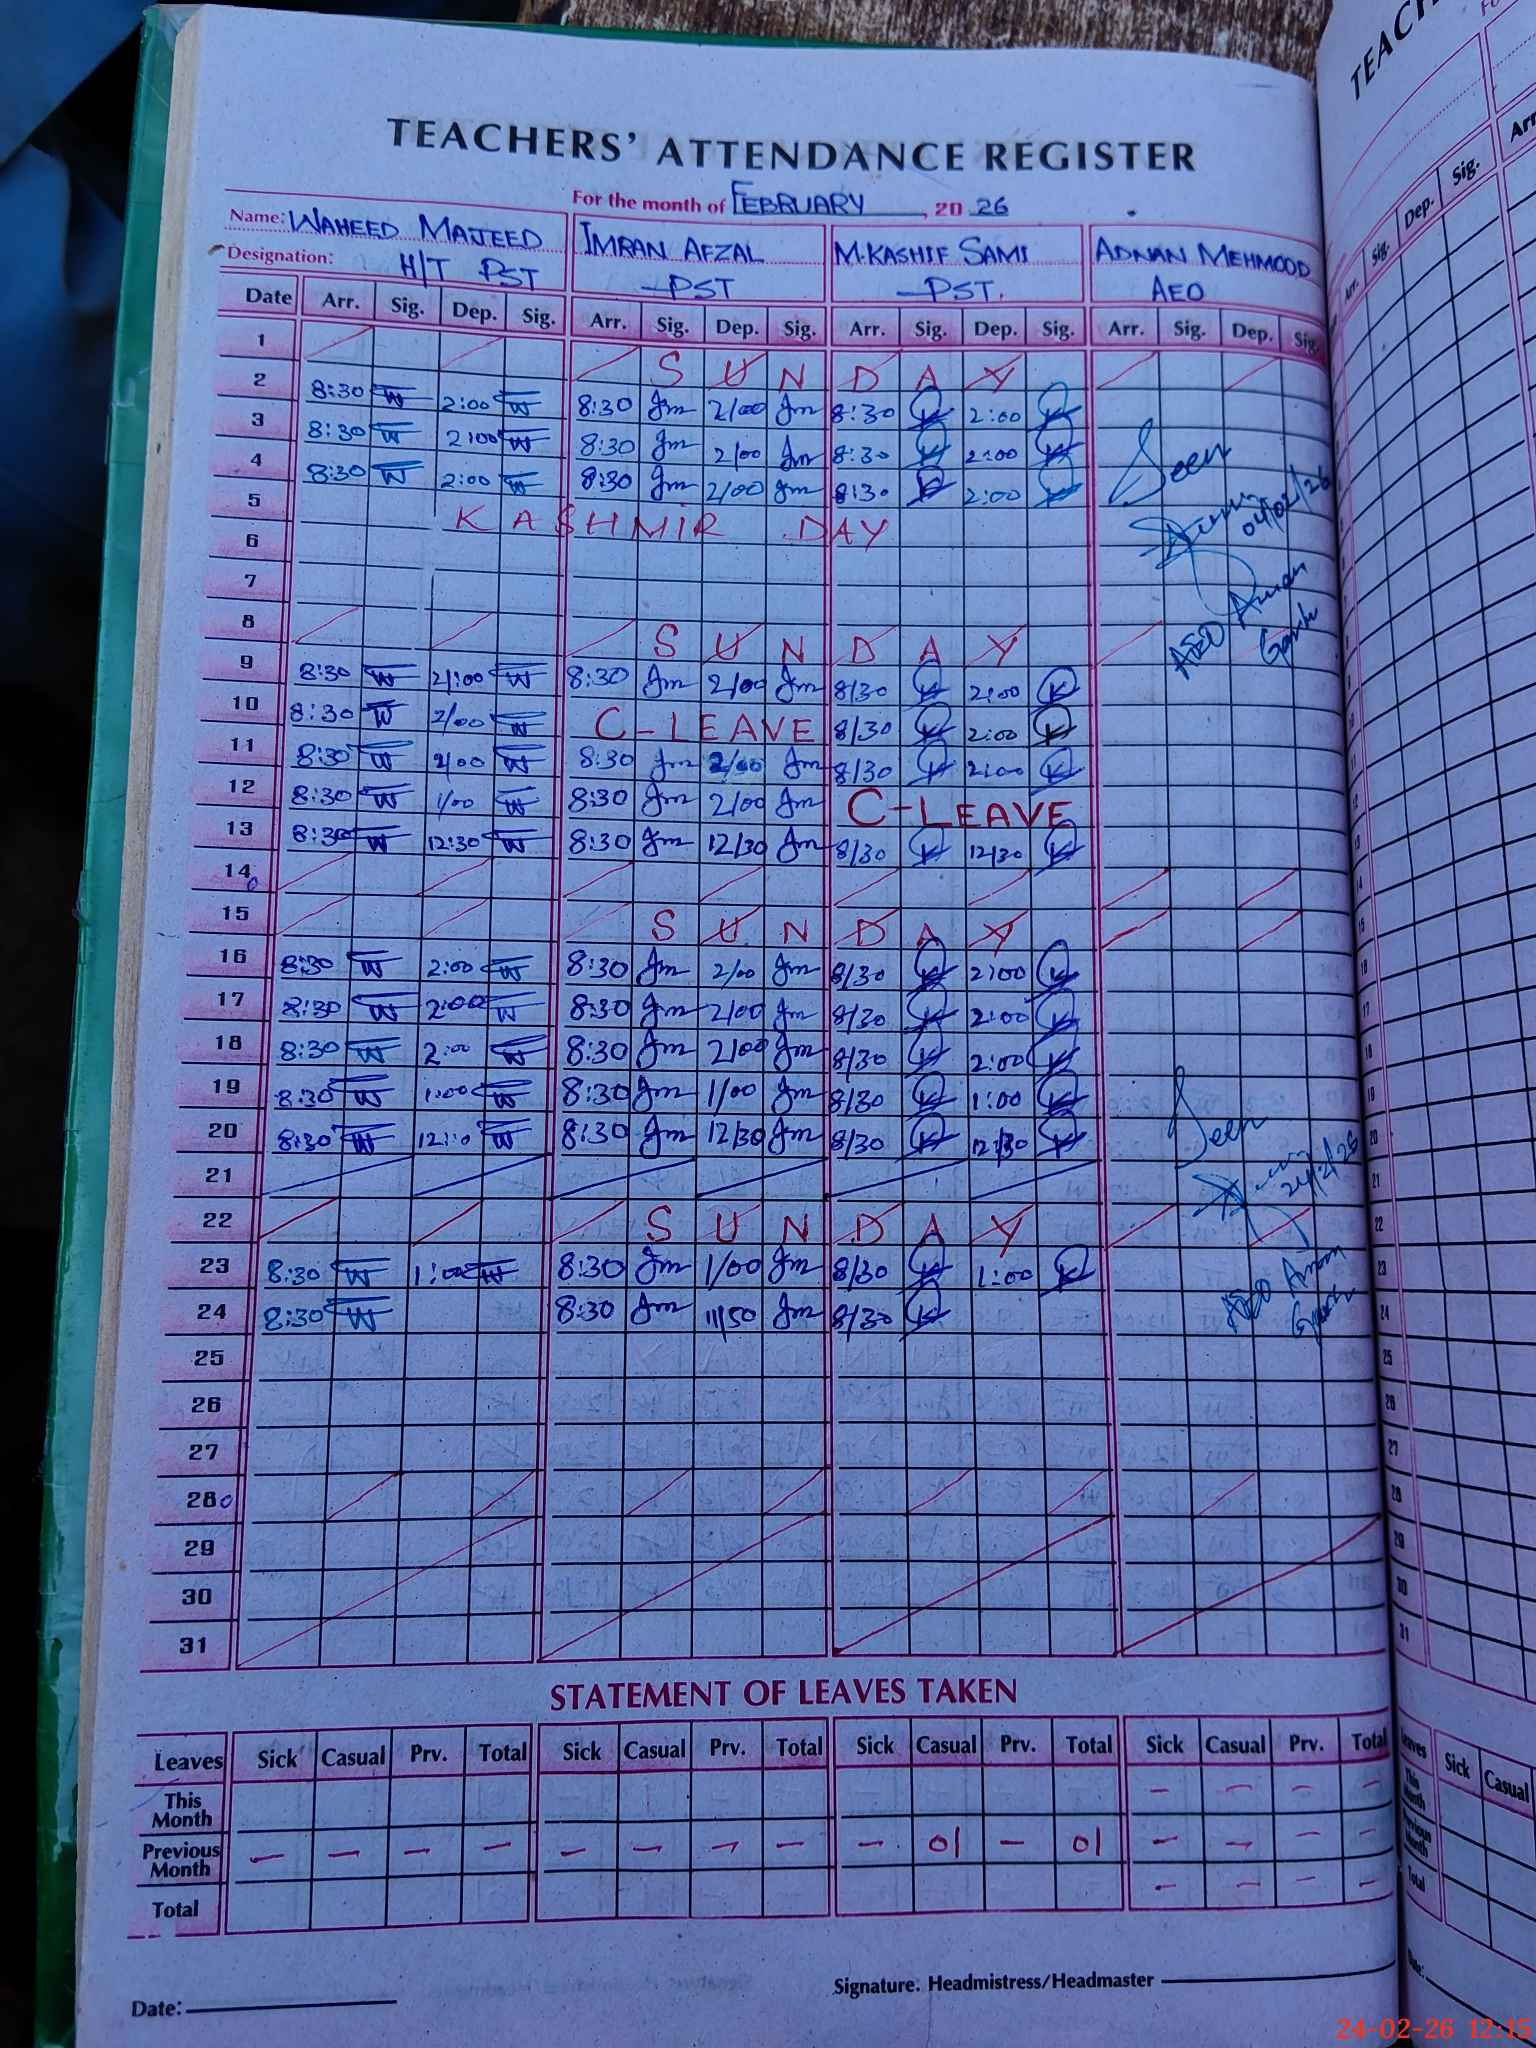 TEACHERS' ATTENDANCE REGISTER
For the month of FEBRUARY, 20 26
Name: WAHEED MAJEED IMRAN AFZAL M.KASHIF SAMI ADNAN MEHMOOD
Designation: H/T PST PST PST. AEO
Date Arr. Sig. Dep. Sig. Arr. Sig. Dep. Sig. Arr. Sig. Dep. Sig. Arr. Sig. Dep. Sig.
1 SUNDAY
2 8:30 W 2:00 W 8:30 Jm 2/00 Jm 8:30 K 2:00 K
3 8:30 W 2:00 W 8:30 Jm 2/00 Jm 8:30 K 2:00 K
4 8:30 W 2:00 W 8:30 Jm 2/00 Jm 8:30 K 2:00 K Seen
5 KASHMIR DAY 04/02/26
6
7 AEO
8 SUNDAY
9 8:30 W 2/:00 W 8:30 Jm 2/00 Jm 8/30 K 2:00 K
10 8:30 W 2/00 W C-LEAVE 8/30 K 2:00 K
11 8:30 W 2/00 W 8:30 Jm 2/00 Jm 8/30 K 2:00 K
12 8:30 W 1/00 W 8:30 Jm 2/00 Jm C-LEAVE
13 8:30 W 12:30 W 8:30 Jm 12/30 Jm 8/30 K 12/30 K
14
15 SUNDAY
16 8:30 W 2:00 W 8:30 Jm 2/00 Jm 8/30 K 2:00 K
17 8:30 W 2:00 W 8:30 Jm 2/00 Jm 8/30 K 2:00 K
18 8:30 W 2:00 W 8:30 Jm 2/00 Jm 8/30 K 2:00 K
19 8:30 W 1:00 W 8:30 Jm 1/00 Jm 8/30 K 1:00 K
20 8:30 W W 8:30 Jm 12/30 Jm 8/30 K 12/30 K Seen
21 24/2/26
22 SUNDAY
23 8:30 W 1:00 W 8:30 Jm 1/00 Jm 8/30 K 1:00 K
24 8:30 W 8:30 Jm 11/50 Jm 8/30 K AEO
25
26
27
28
29
30
31
STATEMENT OF LEAVES TAKEN
Leaves Sick Casual Prv. Total Sick Casual Prv. Total Sick Casual Prv. Total Sick Casual Prv. Total
This Month - - - -
Previous Month - - - - - - - - - 01 - 01 - - - -
Total - - - -
Date:
Signature. Headmistress/Headmaster
24-02-26 12:15